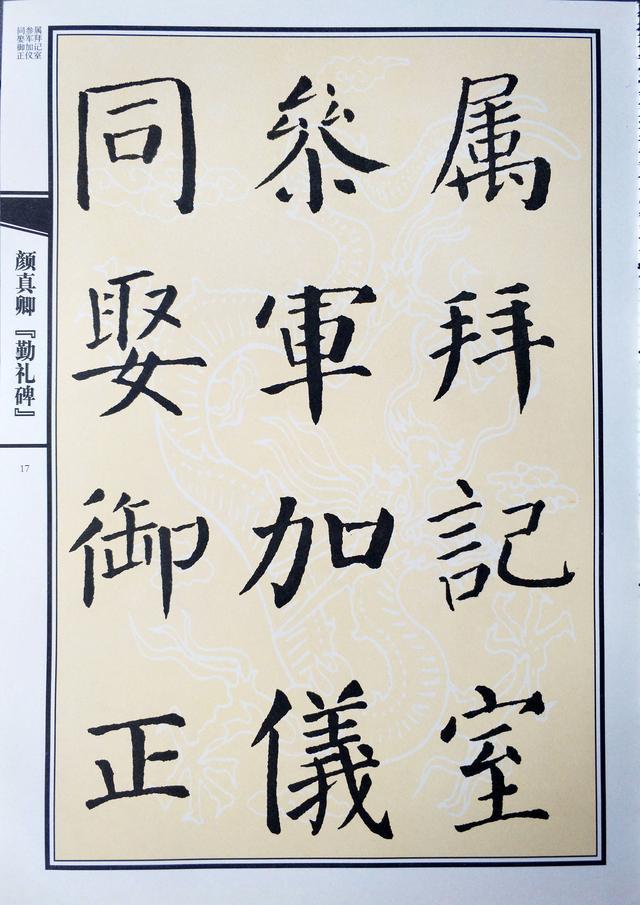 属拜記室
參軍加儀
同娶御正
属拜记室
参军加仪
同娶御正
颜真卿『勤礼碑』
17